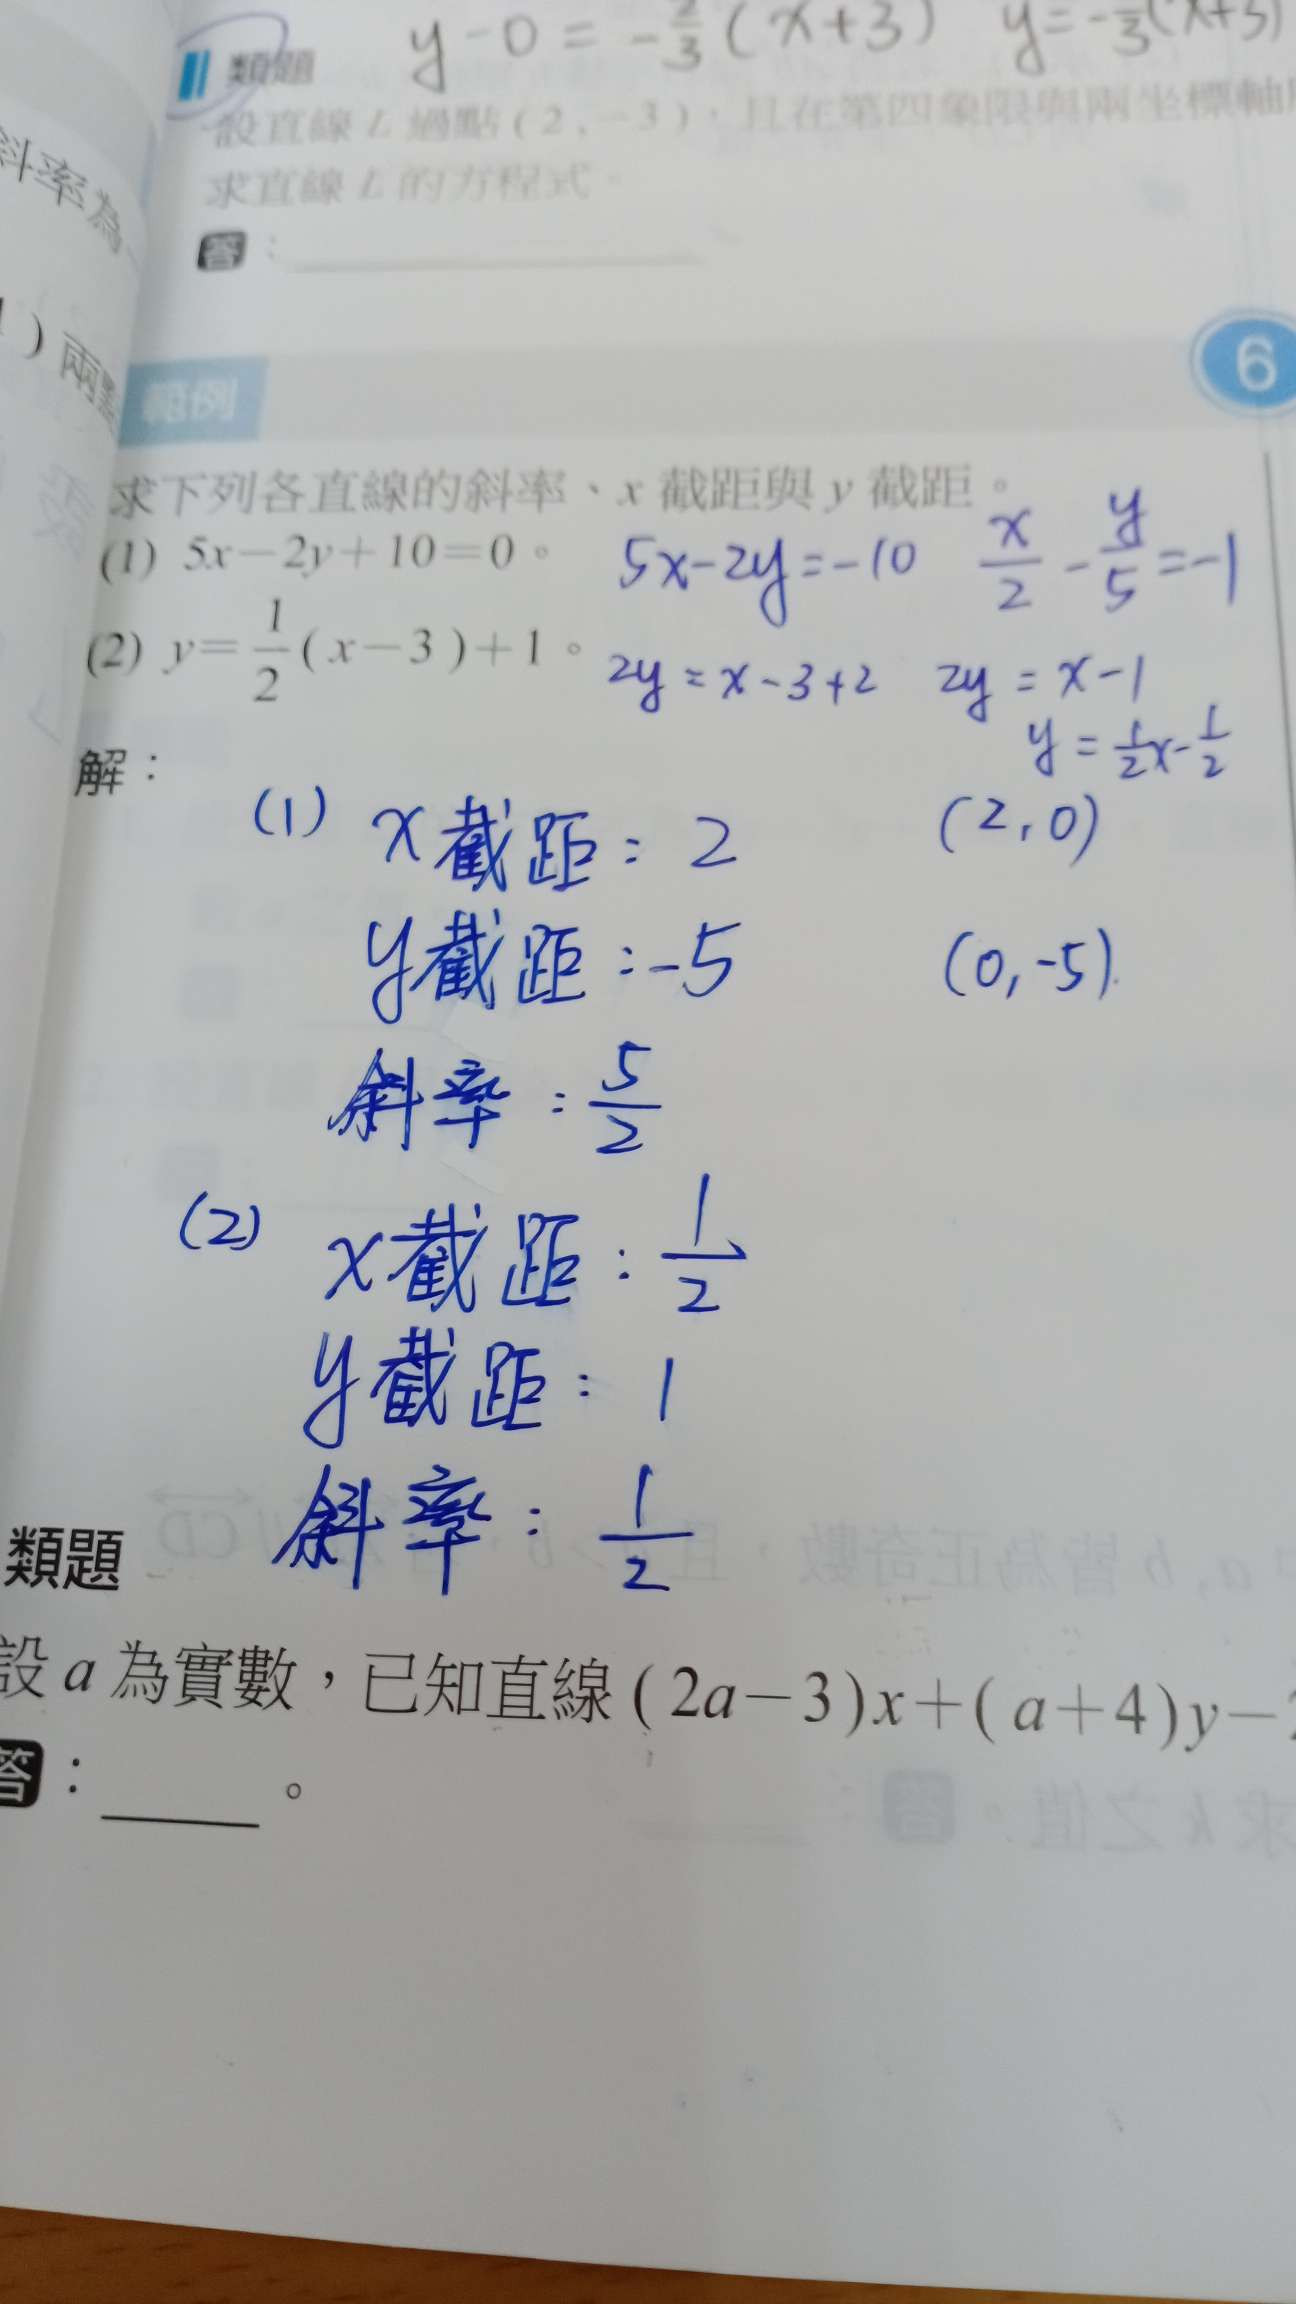 y-0=-\frac{2}{3}(x+3) y=-\frac{2}{3}(x+3)
類題
設直線L過點(2,-3),且在第四象限與兩坐標軸
求直線L的方程式。
答:
斜率為
)兩點
範例
6
求下列各直線的斜率、x截距與y截距。
(1) 5x-2y+10=0。 5x-2y=-10 \frac{x}{2}-\frac{y}{5}=-1
(2) y=\frac{1}{2}(x-3)+1。 2y=x-3+2 2y=x-1
y=\frac{1}{2}x-\frac{1}{2}
解:
(1) x截距:2 (2,0)
y截距:-5 (0,-5).
斜率:\frac{5}{2}
(2) x截距:\frac{1}{2}
y截距:1
斜率:\frac{1}{2}
類題
設a為實數,已知直線(2a-3)x+(a+4)y-
答: 。